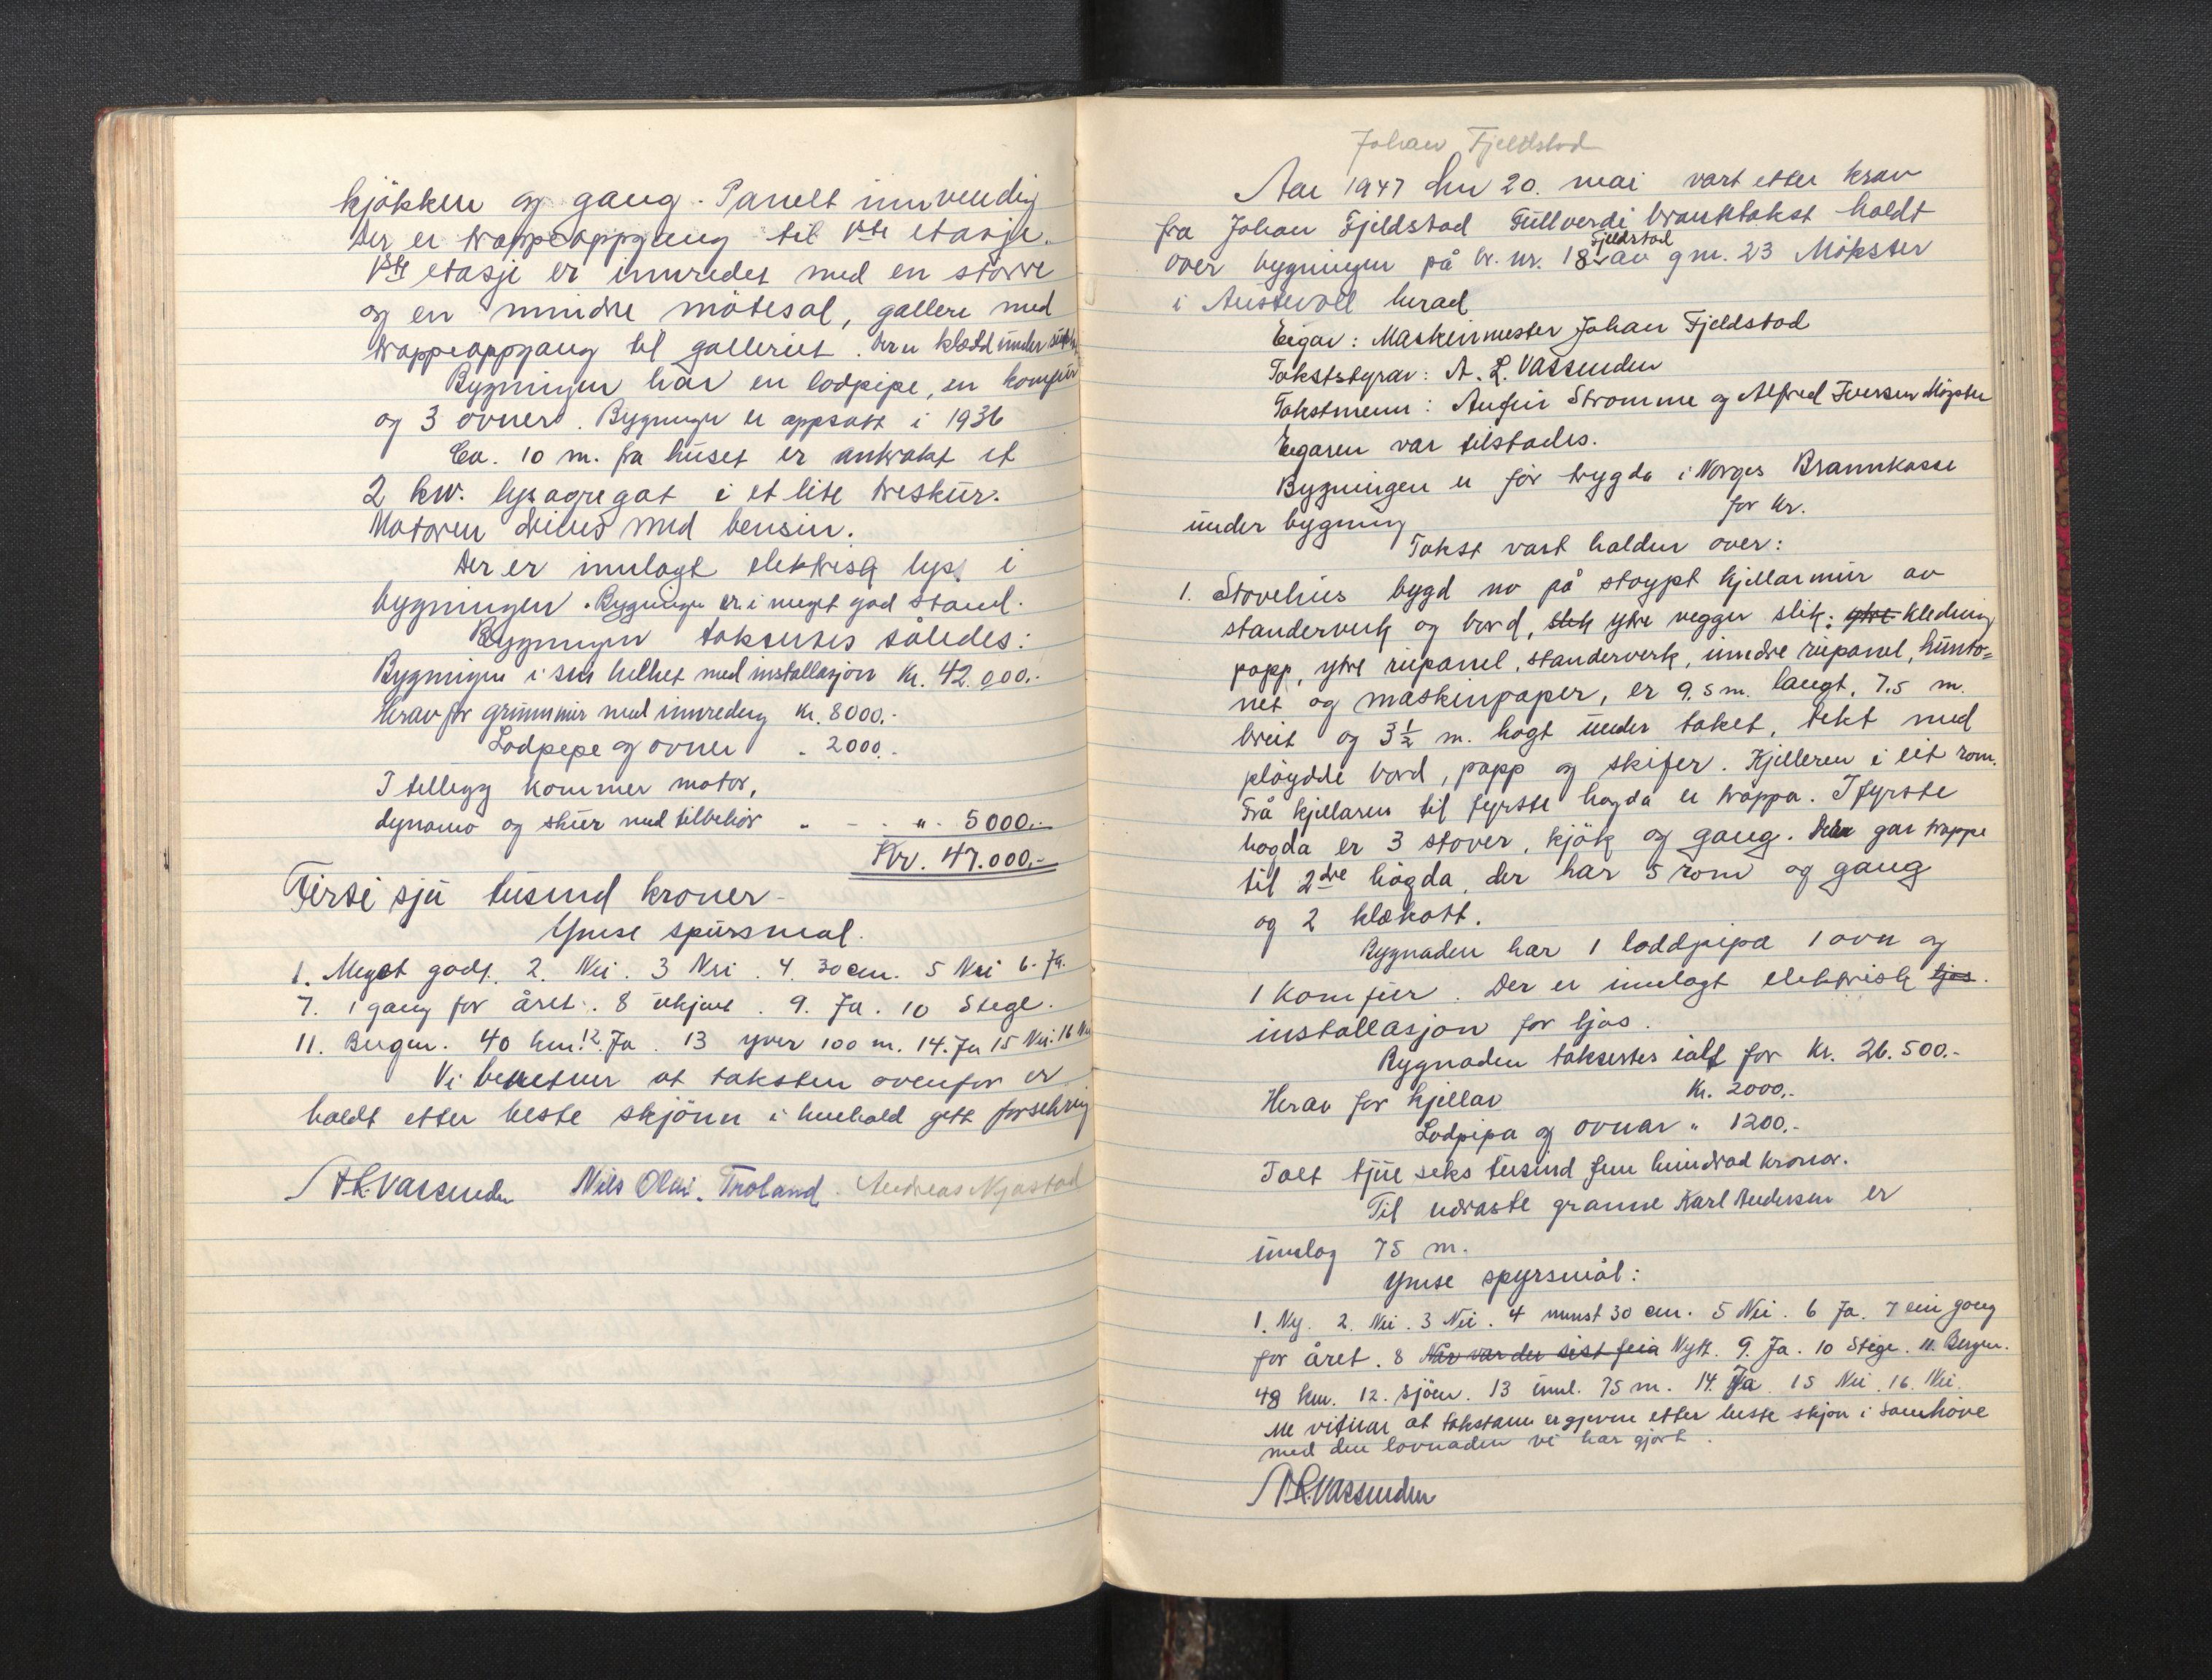 kjökken og gang. Panelt innvendig
Der er trappeoppgang til 1ste etasje.
1ste etasje er innredet med en större
og en mindre mötesal, galleri med
trappeoppgang til galleriet. Der er kledd under
Bygningen har en lodpipe, en komfür
og 3 ovner. Bygningen er oppsatt i 1936
Ca. 10 m. fra hüset er anbrakt et
2 kw. lysagregat i et lite treskür.
Motoren drives med bensin.
Der er innlagt elektrisk lys i
bygningen. Bygningen er i meget god stand.
Bygningen takseres således:
Bygningen i sin helhet med installasjon Kr. 42.000.-
Herav for grünnmür med innredning Kr. 8000.-
Lodpipe og ovner " 2000.-
I tillegg kommer motor,
dynamo og skür med tilbehör " - - " - 5000.-
Kr. 47.000.-
Förti sjü tüsind kroner -
Ymse spürsmal.
1. Meget godt. 2. Nei. 3 Nei. 4. 30 cm. 5 Nei 6. Ja.
7. 1 gang for året. 8 ükjent. 9. Ja. 10 Stege.
11. Bergen. 40 km. 12. Ja. 13 yver 100 m. 14. Ja 15 Nei. 16 Nei
Vi bevitner at taksten ovenfor er
holdt etter beste skjönn i henhold gitt forsikring
A. L. Vassenden Nils Olai. Troland. Andreas Njøstad
Johan Fjeldstad
Aar 1947 den 20. mai vart etter krav
fra Johan Fjeldstad Füllverdi branntakst holdt
Fjeldstad
over bygningen på br. nr. 18 av gnr. 23 Mökster
i Austevoll herad
Eigar: Maskinmester Johan Fjeldstad
Takststyrar: A. L. Vassenden
Takstmenn: Anfin Strømme og Alfred Iversen Møgster
Eigaren var tilstades.
Bygningen er för trygda i Norges Brannkasse
for Kr.
ünder bygning
Takst vart halden over:
1. Stovehüs bygd no på stoypt kjellarmür av
standerverk og bord, slik ytre vegger slik: ytre kledning
papp, ytre rüpanel, standerverk, inndre rüpanel, hünto=
net og maskinpaper, er 9.5 m. langt, 7.5 m.
breit og 3½ m. hogt ünder taket, tekt med
plöygde bord, papp og skifer. Kjelleren i eit rom.
Frå kjellaren til fyrste hogda er trappa. I fyrste
hogda er 3 stover, kjök og gang. Der gar trappe
til 2dre högda, der har 5 rom og gang
og 2 klekott.
Bygnaden har 1 loddpipa 1 ovn og
1 komfür. Der er innlagt elektrisk ljos.
installasjon for ljos.
Bygnaden taksertes ialt for Kr. 26.500.-
Herav for kjellar Kr. 2000.-
Lodpipa og ovnar " 1200.-
Ialt tjue seks tüsind fem hündrad kronor.
Til næraste granne Karl Andersen er
ümlag 75 m.
Ymse spyrsmål:
1. Ny. 2. Nei. 3 Nei. 4 minst 30 cm. 5 Nei. 6 Ja. 7 ein gong
for året. 8 Når var der sist feia Nytt. 9. Ja. 10 Stige. 11. Bergen.
48 km. 12. sjöen. 13 üml. 75 m. 14. Ja. 15 Nei. 16. Nei.
Me vitnar at takstann er gjeven etter beste skjon i samhöve
med den lovnaden vi har gjort.
A. L. Vassenden